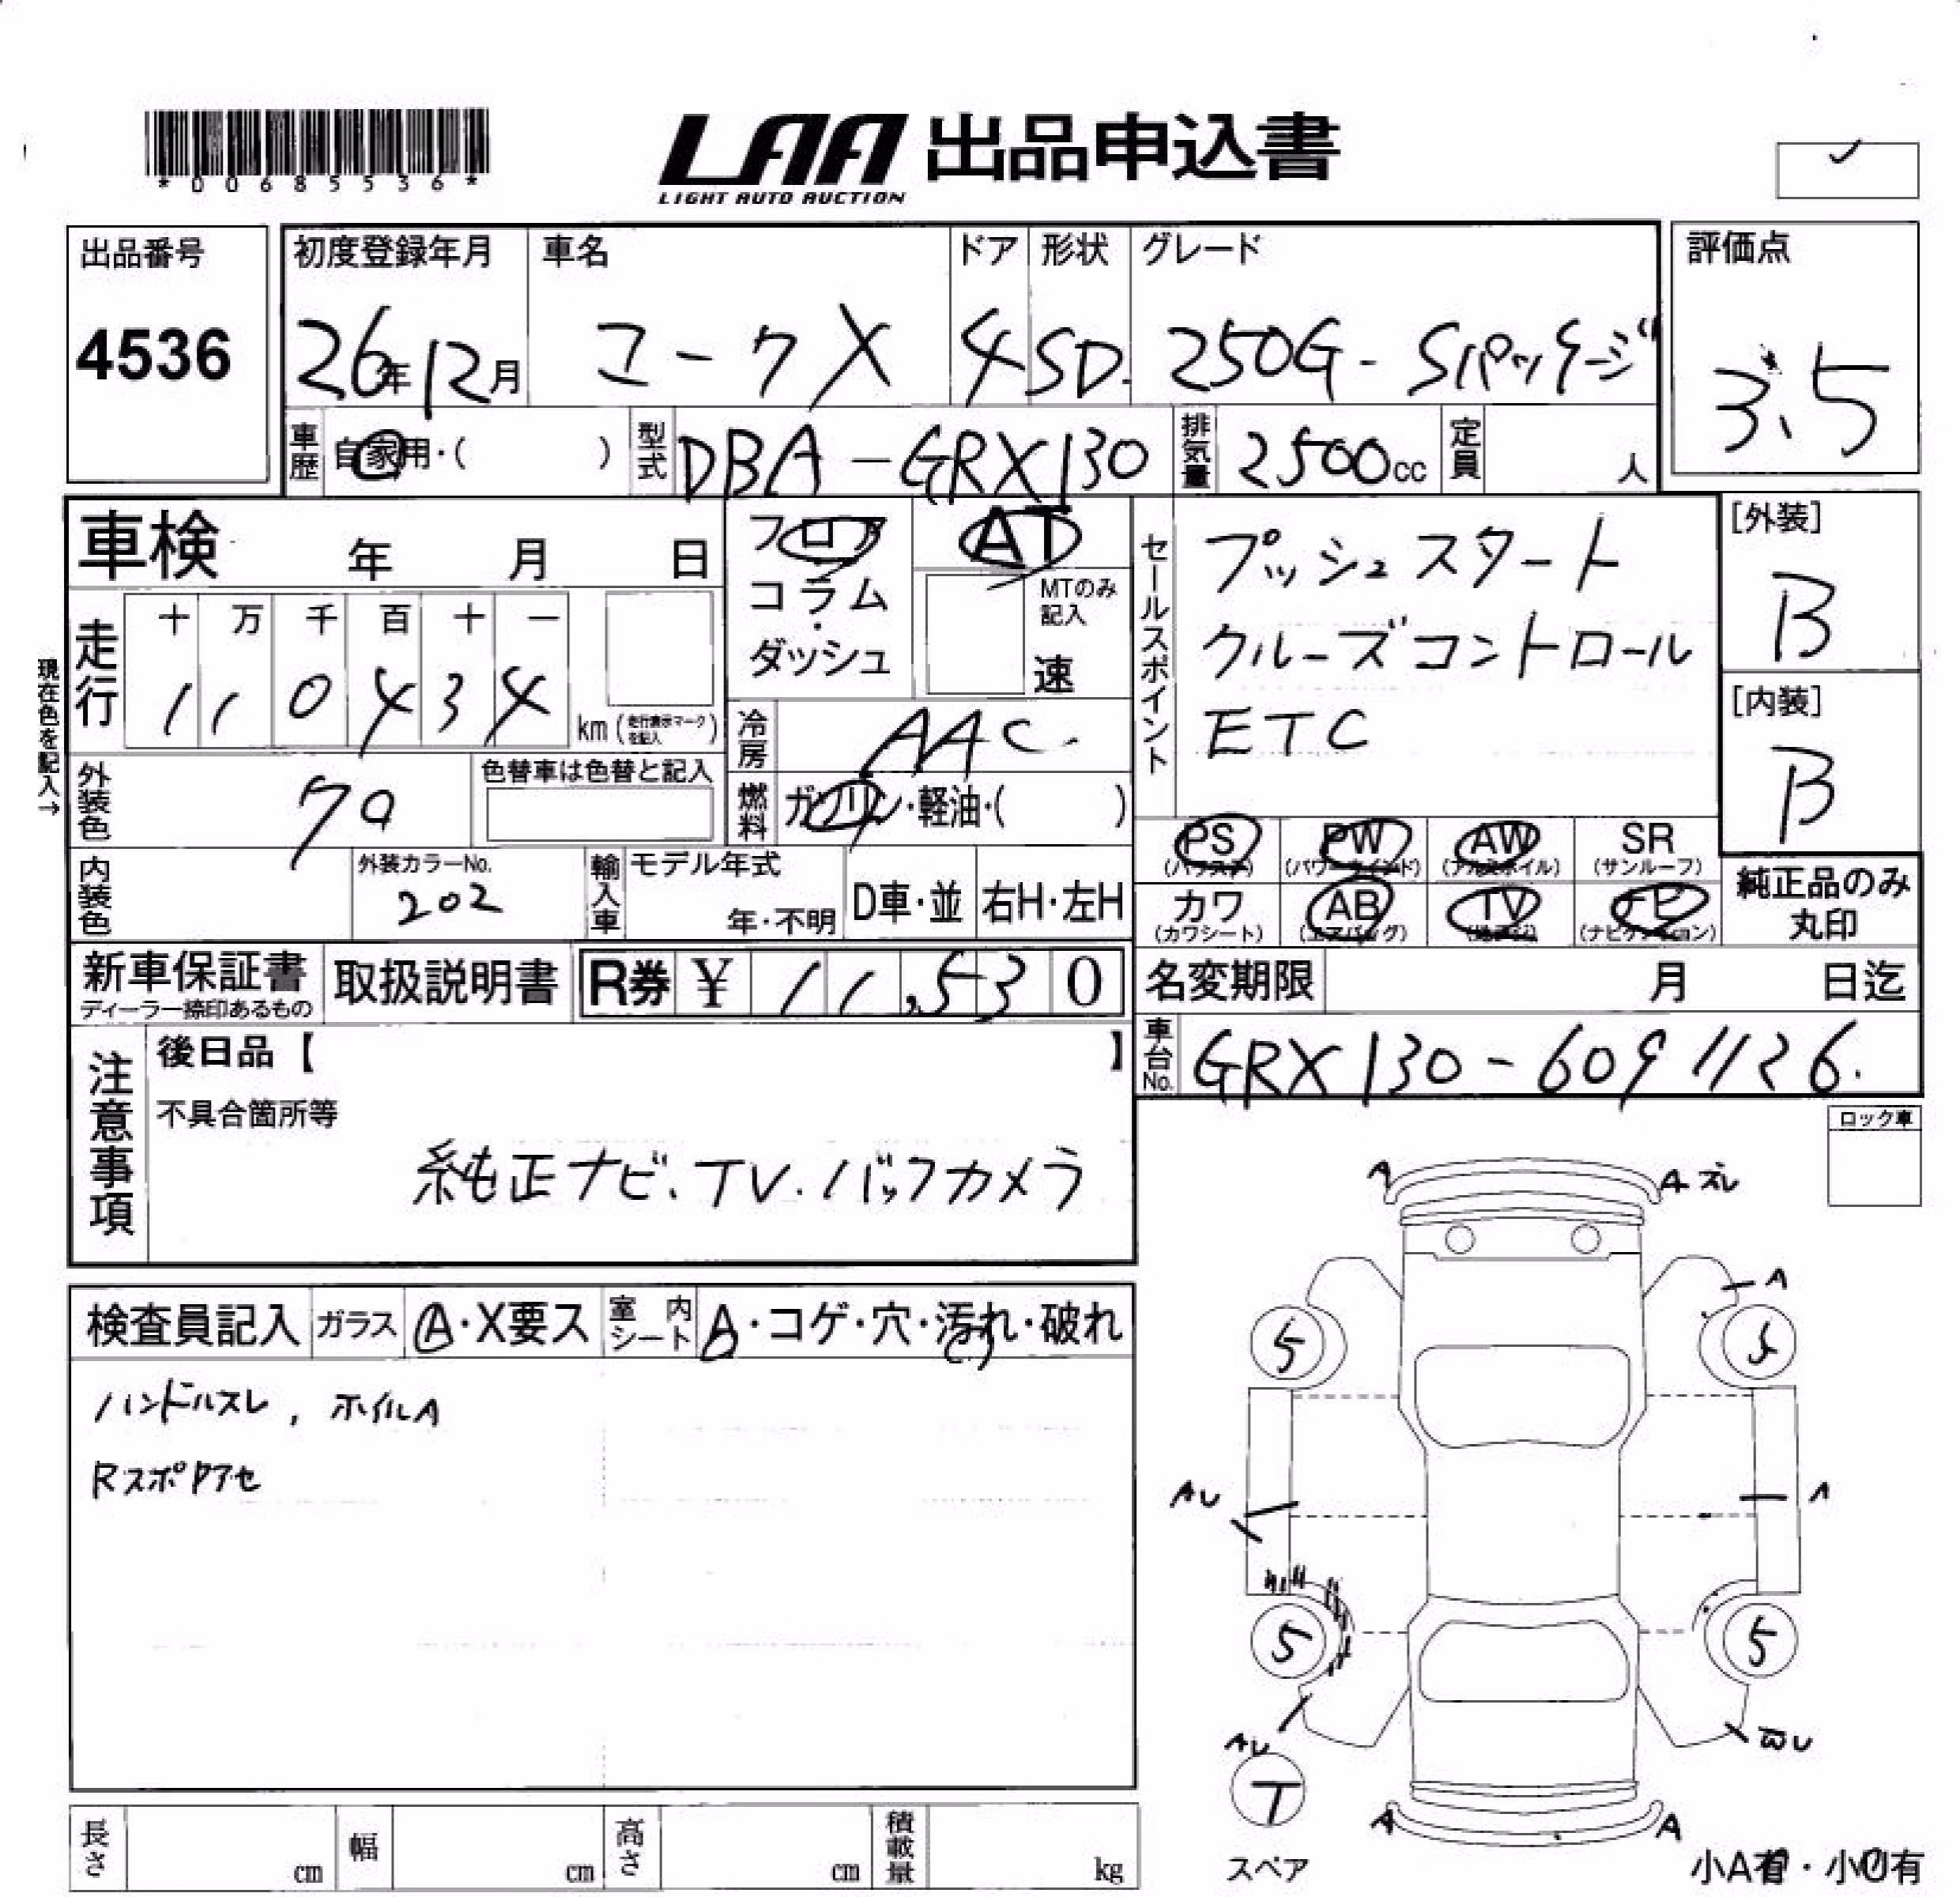 *00685536*
LAA 出品申込書
LIGHT AUTO AUCTION
出品番号
4536
初度登録年月
26年12月
車名
マークX
ドア
4
形状
SD.
グレード
250G-Sパッケージ
評価点
3.5
車歴
自家用・( )
型式
DBA-GRX130
排気量
2500cc
定員
人
車検 年 月 日
フロア
コラム
ダッシュ
AT
MTのみ
記入
速
セールスポイント
プッシュスタート
クルーズコントロール
ETC
[外装]
B
[内装]
B
現在色を記入→
走行
十 万 千 百 十 一
1 1 0 4 3 4
km (走行表示マークを記入)
冷房
AAC
外装色
色替車は色替と記入
燃料
ガソリン・軽油・( )
PS
(パワステ)
PW
(パワーウインド)
AW
(アルミホイル)
SR
(サンルーフ)
カワ
(カワシート)
AB
(エアバッグ)
TV
ナビ
(ナビゲーション)
純正品のみ
丸印
内装色
外装カラーNo.
202
輸入車
モデル年式
年・不明
D車・並
右H・左H
新車保証書
ディーラー捺印あるもの
取扱説明書
R券 ¥ 11,530
名変期限 月 日迄
車台No.
GRX130-6091126.
注意事項
後日品【 】
不具合箇所等
純正ナビ、TV.バックカメラ
ロック車
検査員記入
ガラス
A・X要ス
室内シート
A・コゲ・穴・汚れ・破れ
ハンドルスレ, ホイルA
A
A ズレ
A
5
5
AU
A
5
5
AU
T
スペア
A
A
小A有・小U有
長さ cm
幅 cm
高さ cm
積載量 kg